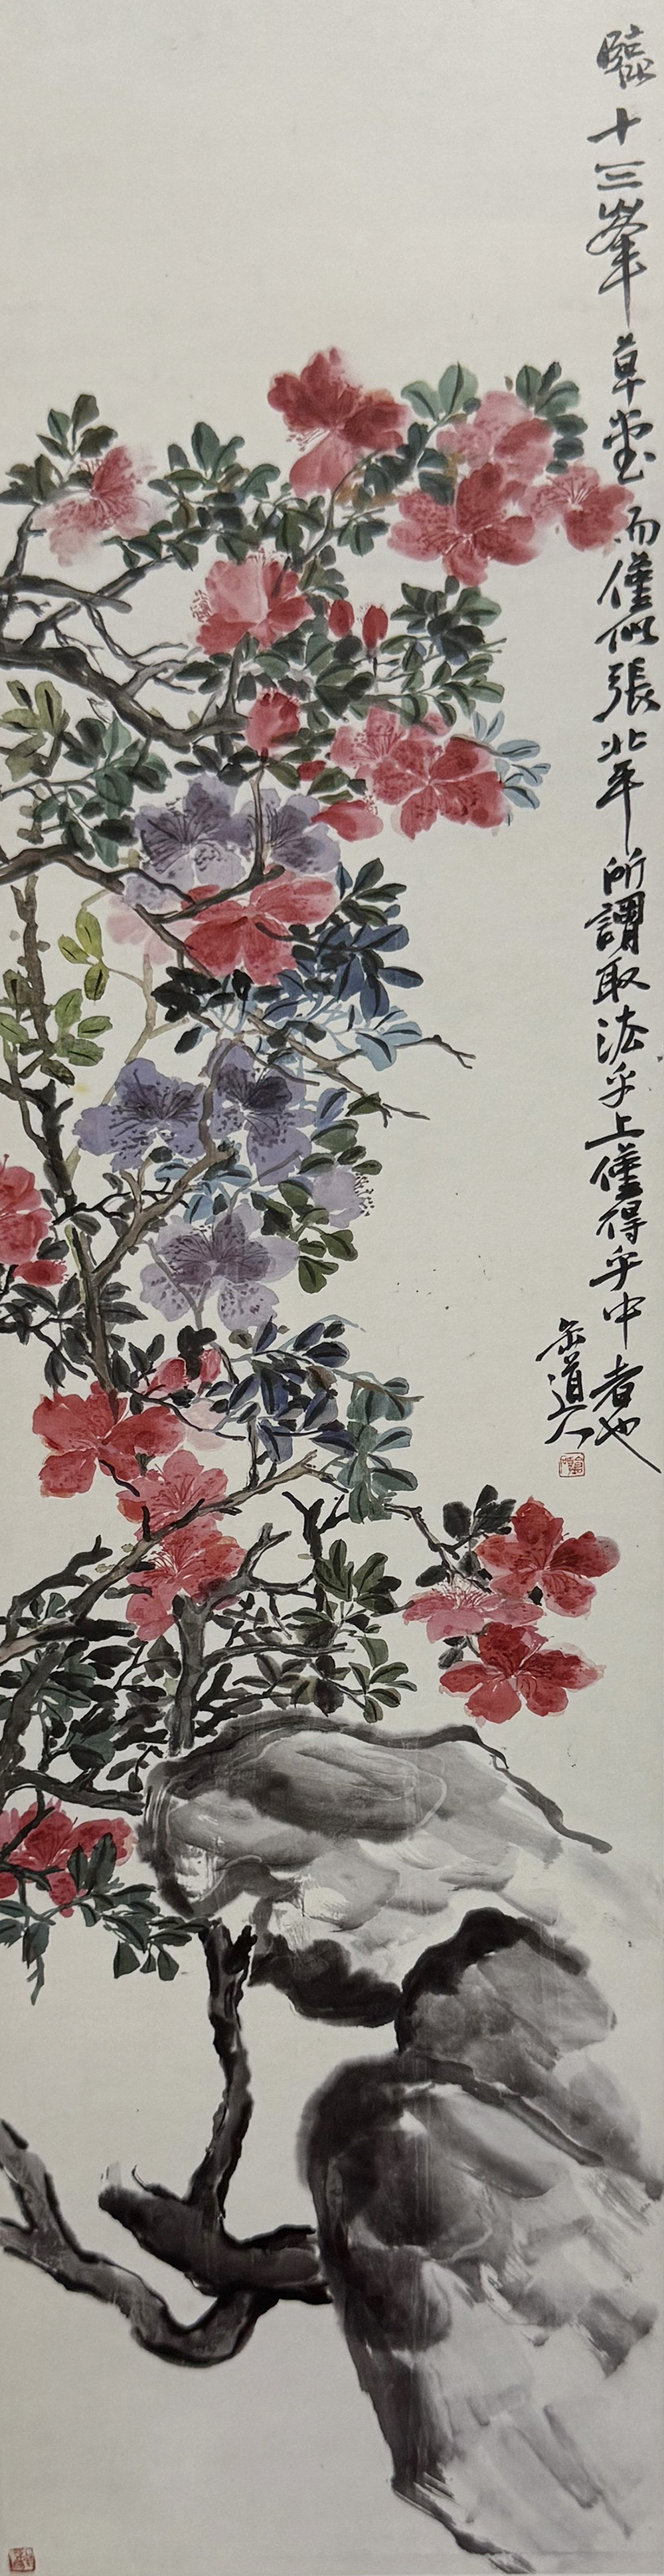 臨十三峯草堂而僅似張北平所謂取法乎上僅得乎中者也
缶道人